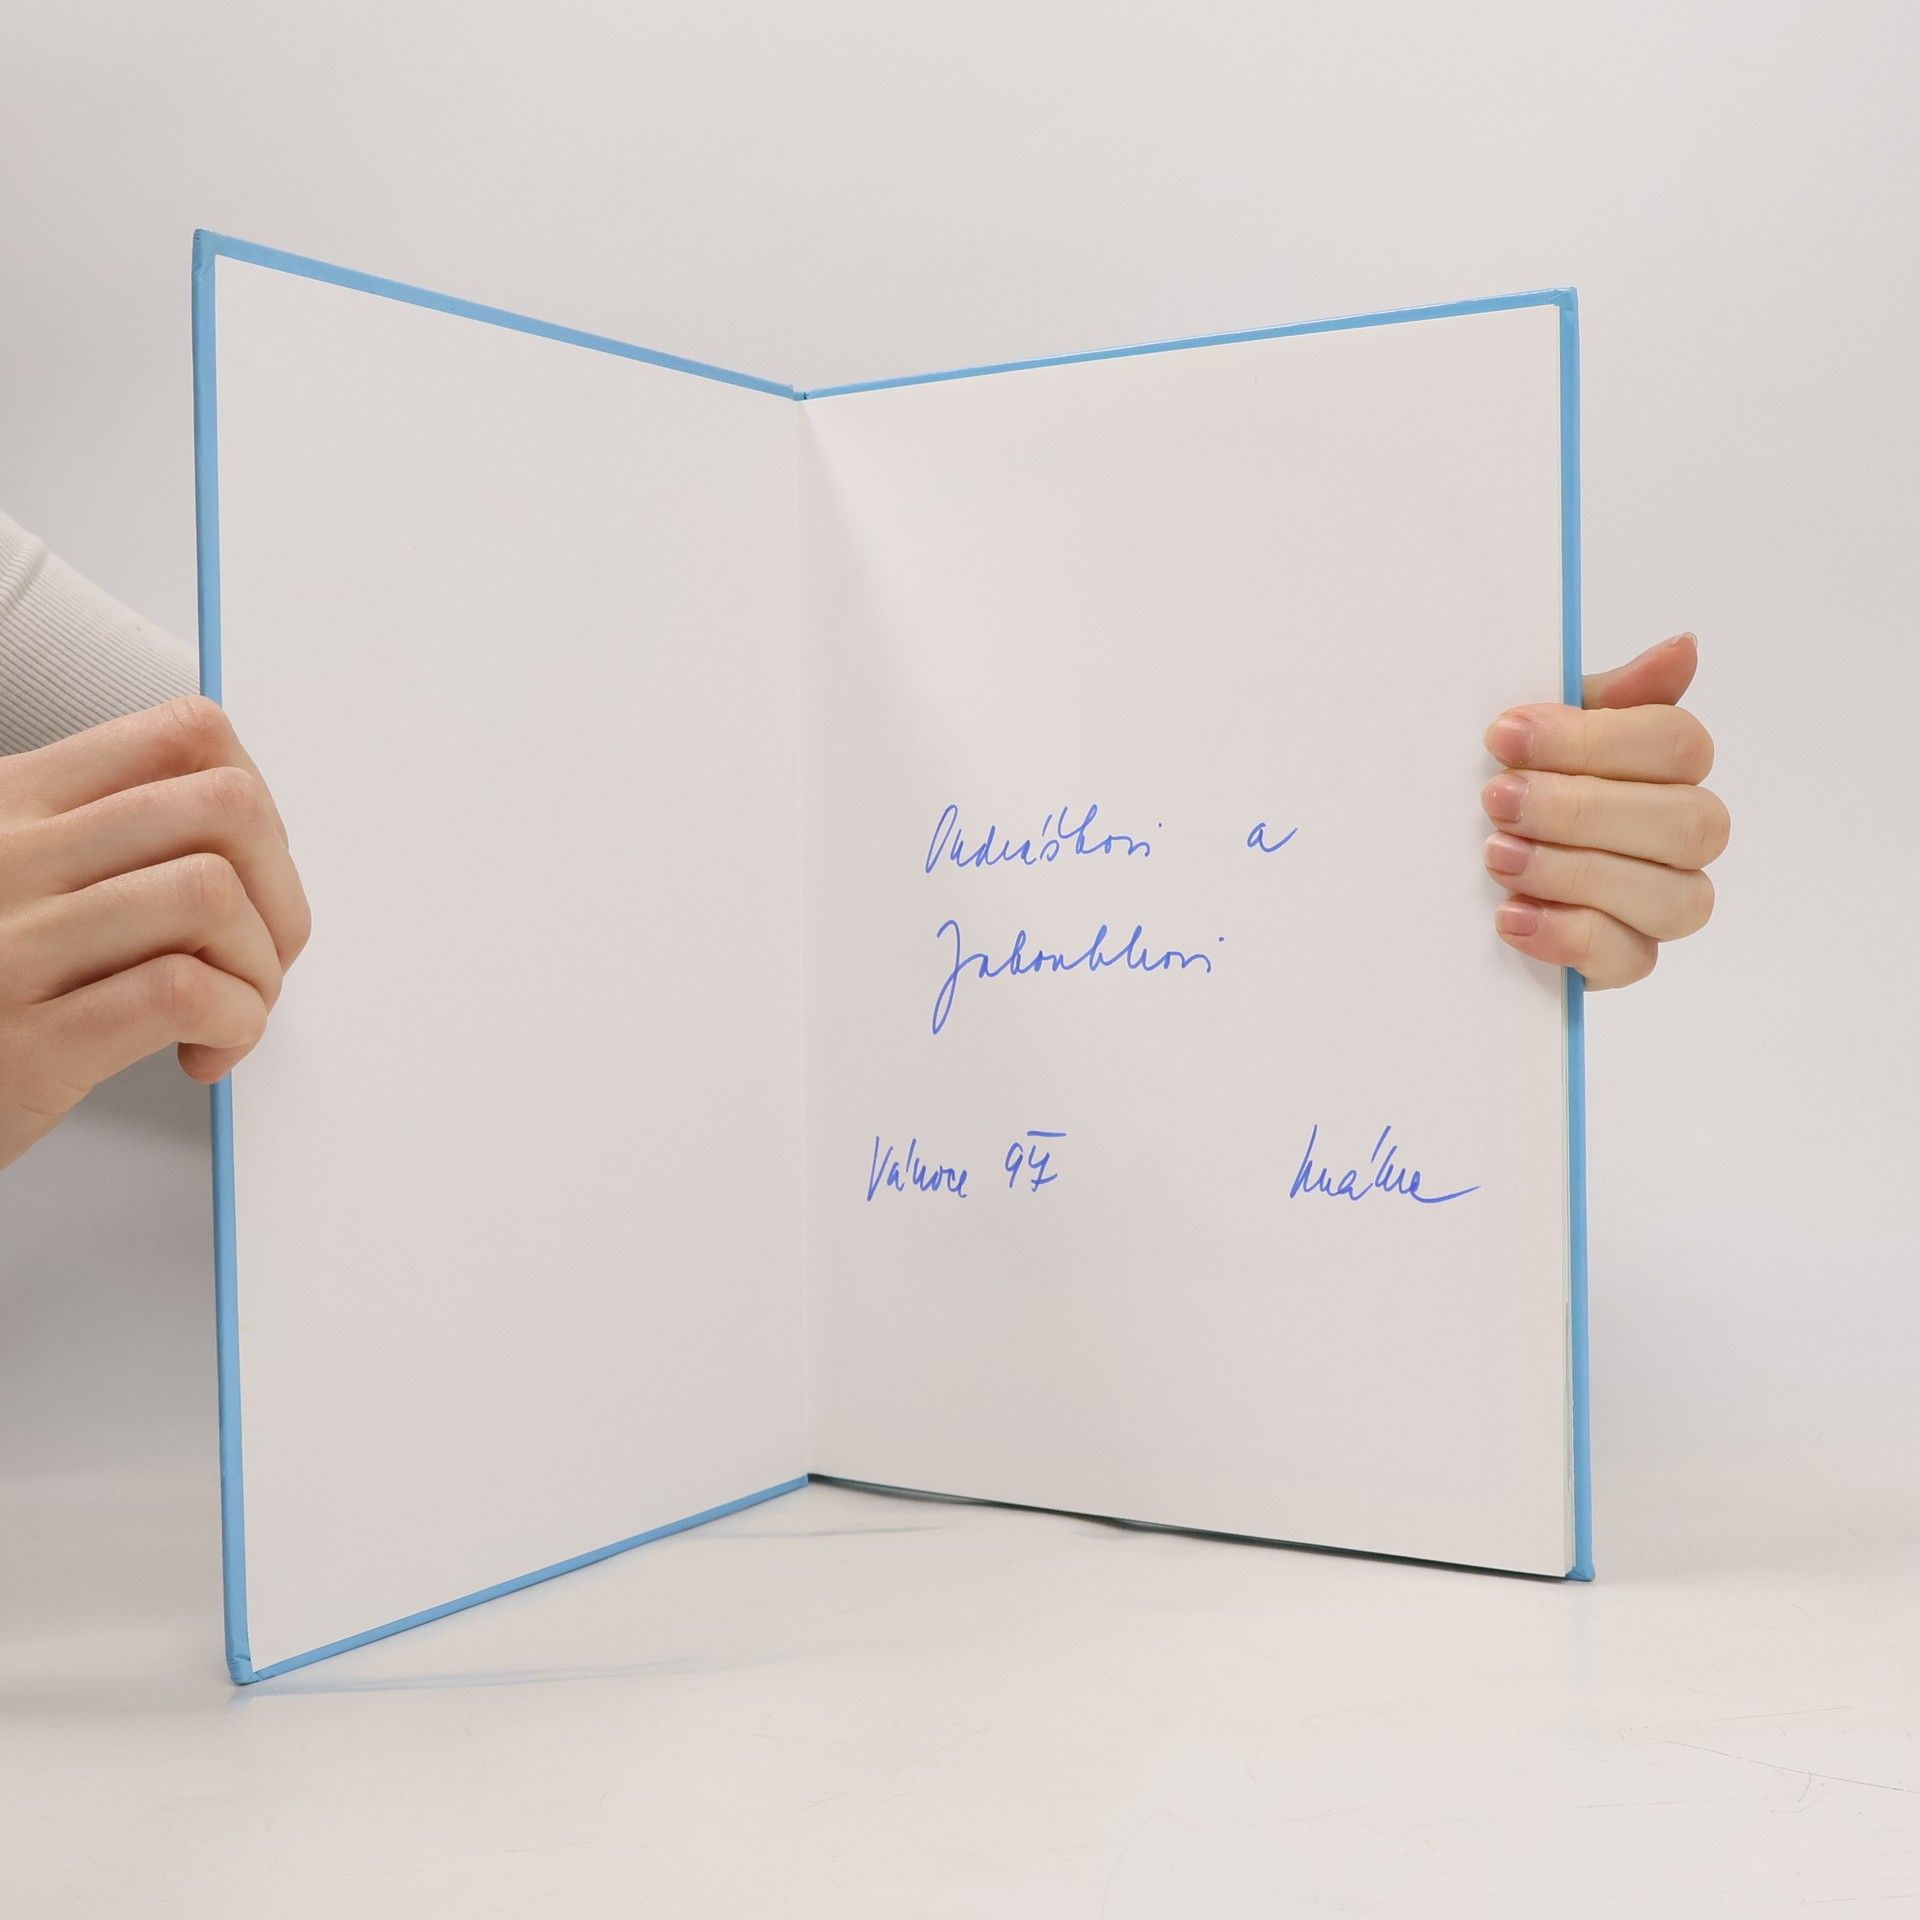 Ondráškovi a
Jakoubkovi
Vánoce 97